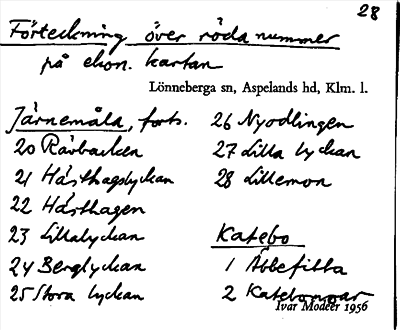 28
Förteckning över röda nummer
på ekon. kartan
Lönneberga sn, Aspelands hd, Klm. l.
Järnemåla, forts.
20 Rävbacken
21 Hästhagslyckan
22 Hästhagen
23 Lillalyckan
24 Berglyckan
25 Stora lyckan
26 Nyodlingen
27 Lilla lyckan
28 Lillemon
Katebo
1 Äbbefilla
2 Katebomoar
Ivar Modéer 1956